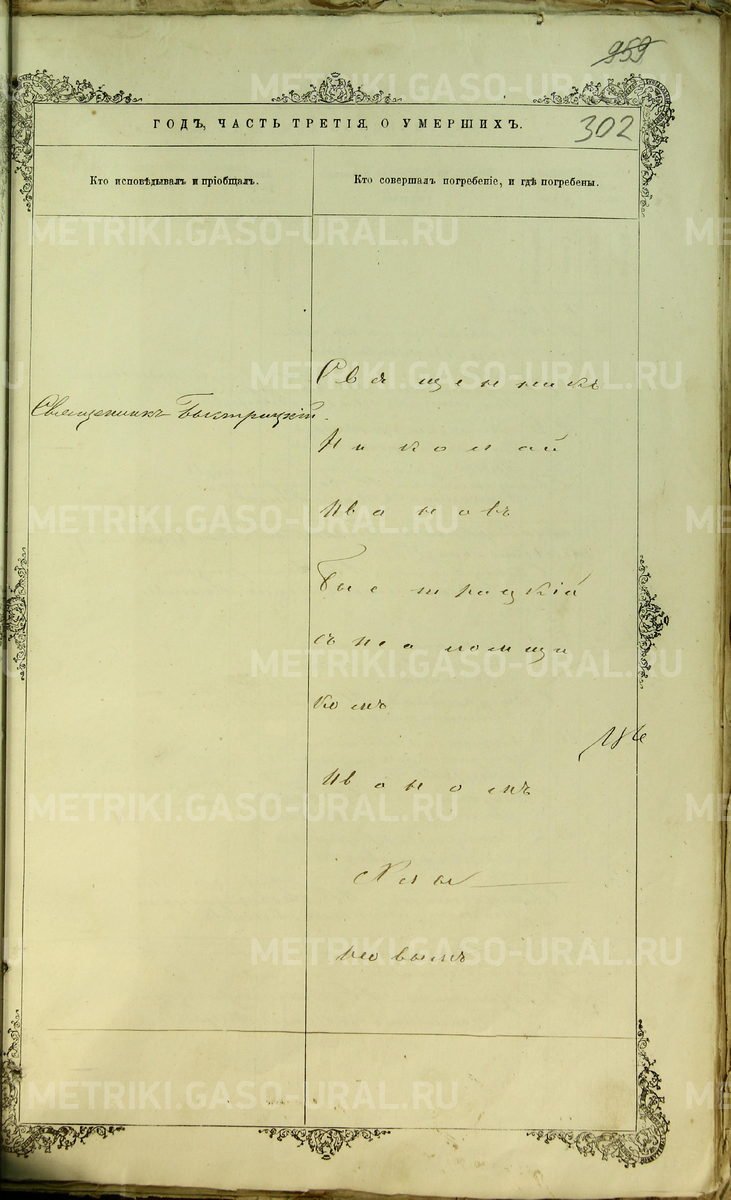 959
ГОДЪ, ЧАСТЬ ТРЕТІЯ, О УМЕРШИХЪ.
302
Кто исповѣдывалъ и пріобщалъ.
Кто совершалъ погребеніе, и гдѣ погребены.
Священникъ Быстрицкій.
Священникъ
Николай
Ивановъ
Быстрицкій
съ
комъ
Иваномъ
METRIKI.GASO-URAL.RU